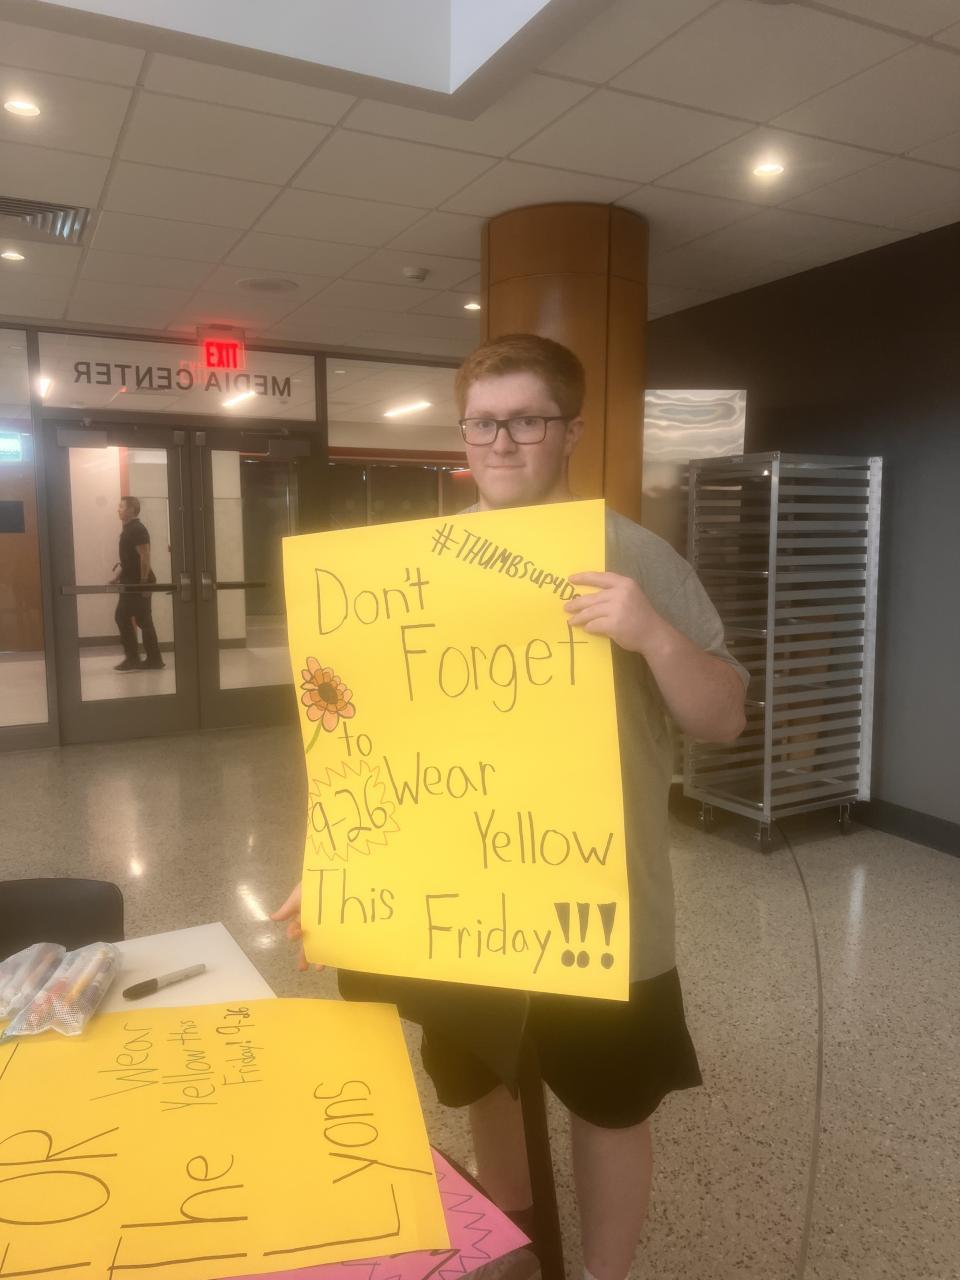 EXIT
MEDIA CENTER
#THUMBSUP4D
Don't
Forget
to
9-26
Wear
Yellow
This
Friday!!!
Wear
Yellow this
Friday! 9-26
FOR
The
Lyons